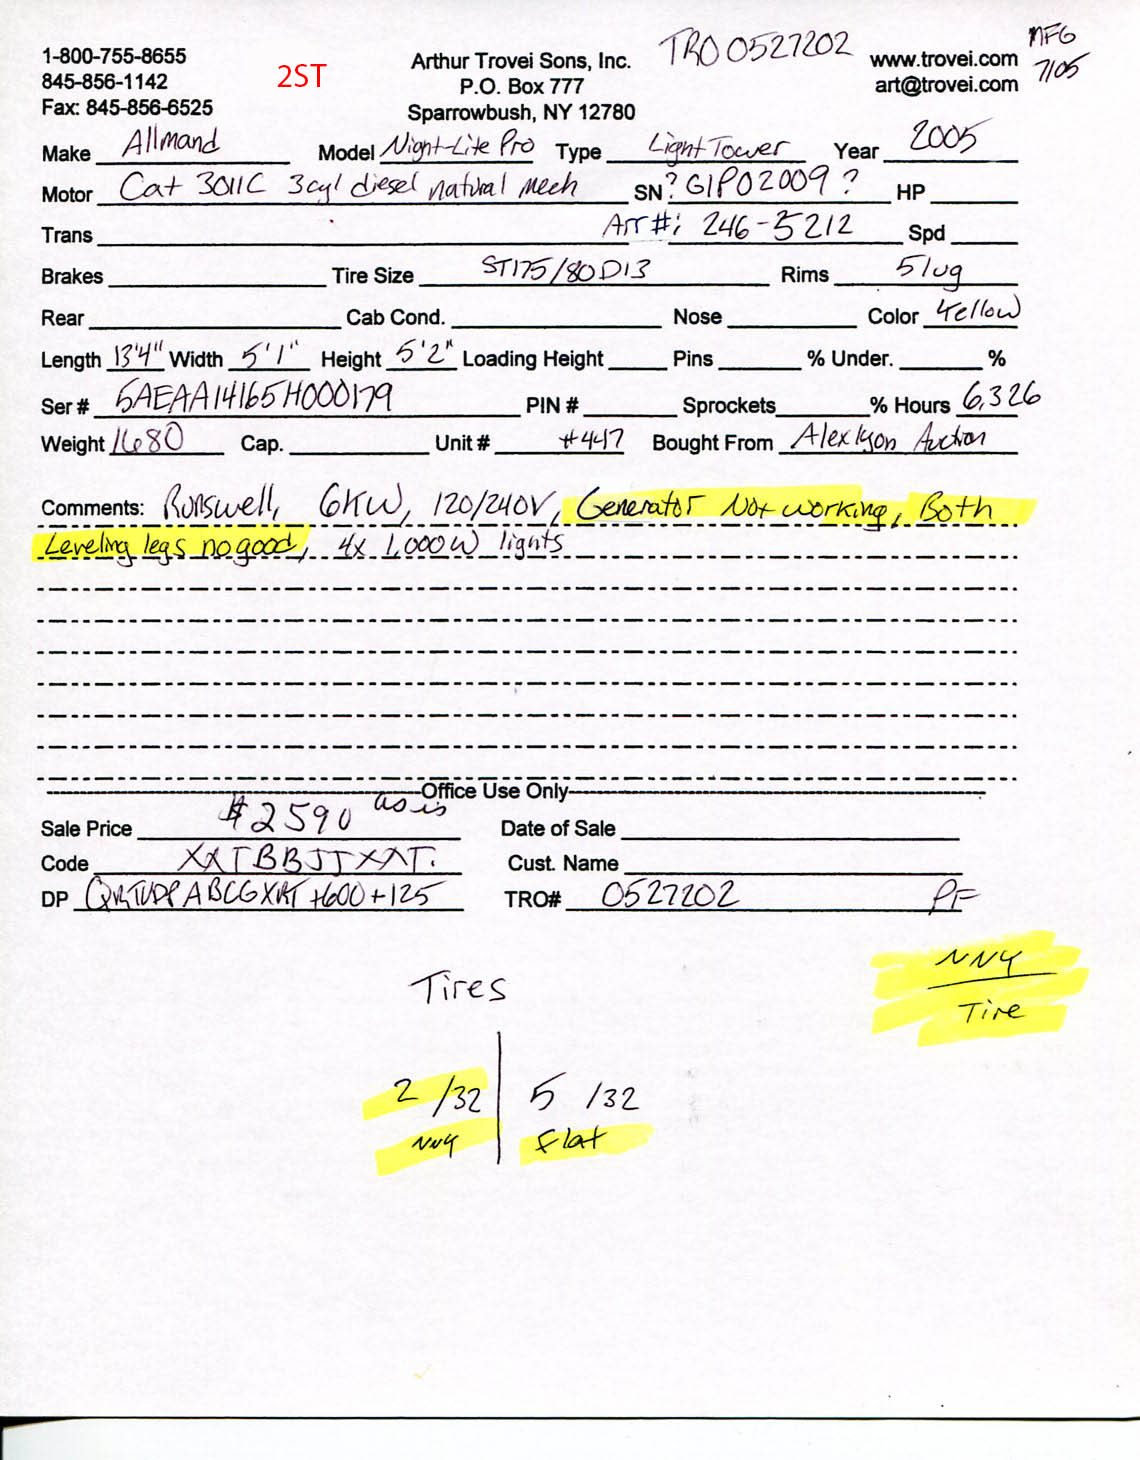 1-800-755-8655
845-856-1142
Fax: 845-856-6525
2ST
Arthur Trovei Sons, Inc.
P.O. Box 777
Sparrowbush, NY 12780
TRO 0527202
www.trovei.com
art@trovei.com
MFG
7/05
Make Allmand Model Night-Lite Pro Type Light Tower Year 2005
Motor Cat 3011C 3cyl diesel natural Mech SN ? G1P02009 ? HP
Trans Arr#: 246-5212 Spd
Brakes Tire Size ST175/80D13 Rims 5 lug
Rear Cab Cond. Nose Color Yellow
Length 13'4" Width 5'1" Height 5'2" Loading Height Pins % Under. %
Ser # 5AEAA14165H000179 PIN # Sprockets % Hours 6,326
Weight 1680 Cap. Unit # #447 Bought From Alex Lyon Auction
Comments: Runswell, 6KW, 120/240V, Generator Not working, Both
Leveling legs no good, 4x 1,000W lights
Office Use Only
Sale Price $2590 as is Date of Sale
Code XXTBBJTXXT. Cust. Name
DP +600+125 TRO# 0527202 PF
NNY
Tire
Tires
2 /32 5 /32
NNY flat